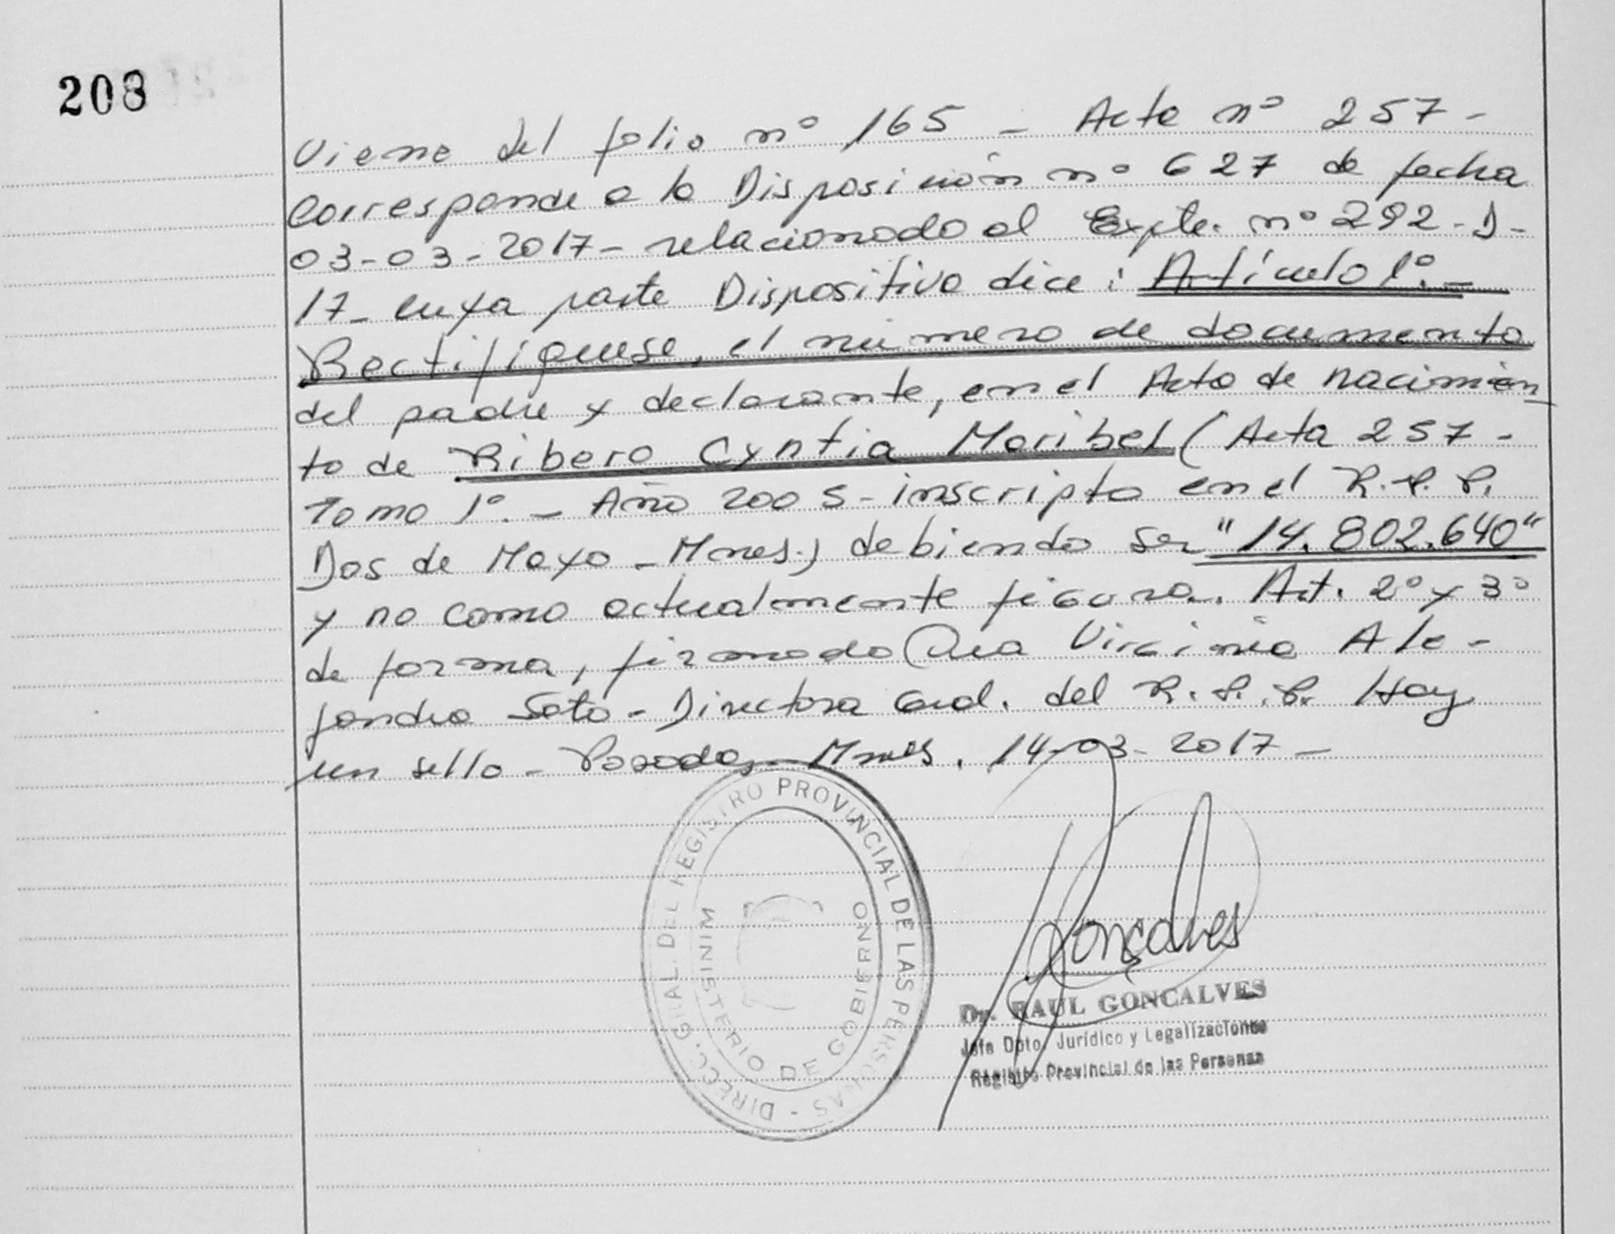 208
Viene del folio nº 165 - Acta nº 257 -
Corresponde a la Disposición nº 627 de fecha
03-03-2017- relacionado al Expte. nº 292-D-
17- cuya parte Dispositiva dice: Artículo 1º.-
Rectifíquese, el número de documento
del padre y declarante, en el Acta de nacimien
to de Ribero Cyntia Maribel (Acta 257-
Tomo 1º.- Año 2005- inscripta en el R.P.P.
Dos de Mayo - Mnes.) debiendo ser "14.802.640"
y no como actualmente figura. Art. 2º y 3º
de forma, firmado Dra Virginia Ale-
jandra Soto - Directora Gral. del R.P.P. Hay
un sello - Posadas - Mnes. 14-03-2017-
DIRECC. GRAL. DEL REGISTRO PROVINCIAL DE LAS PERSONAS -
MINISTERIO DE GOBIERNO
Gonçalves
Dr. RAUL GONCALVES
Jefe Dpto. Jurídico y Legalizaciones
Registro Provincial de las Personas